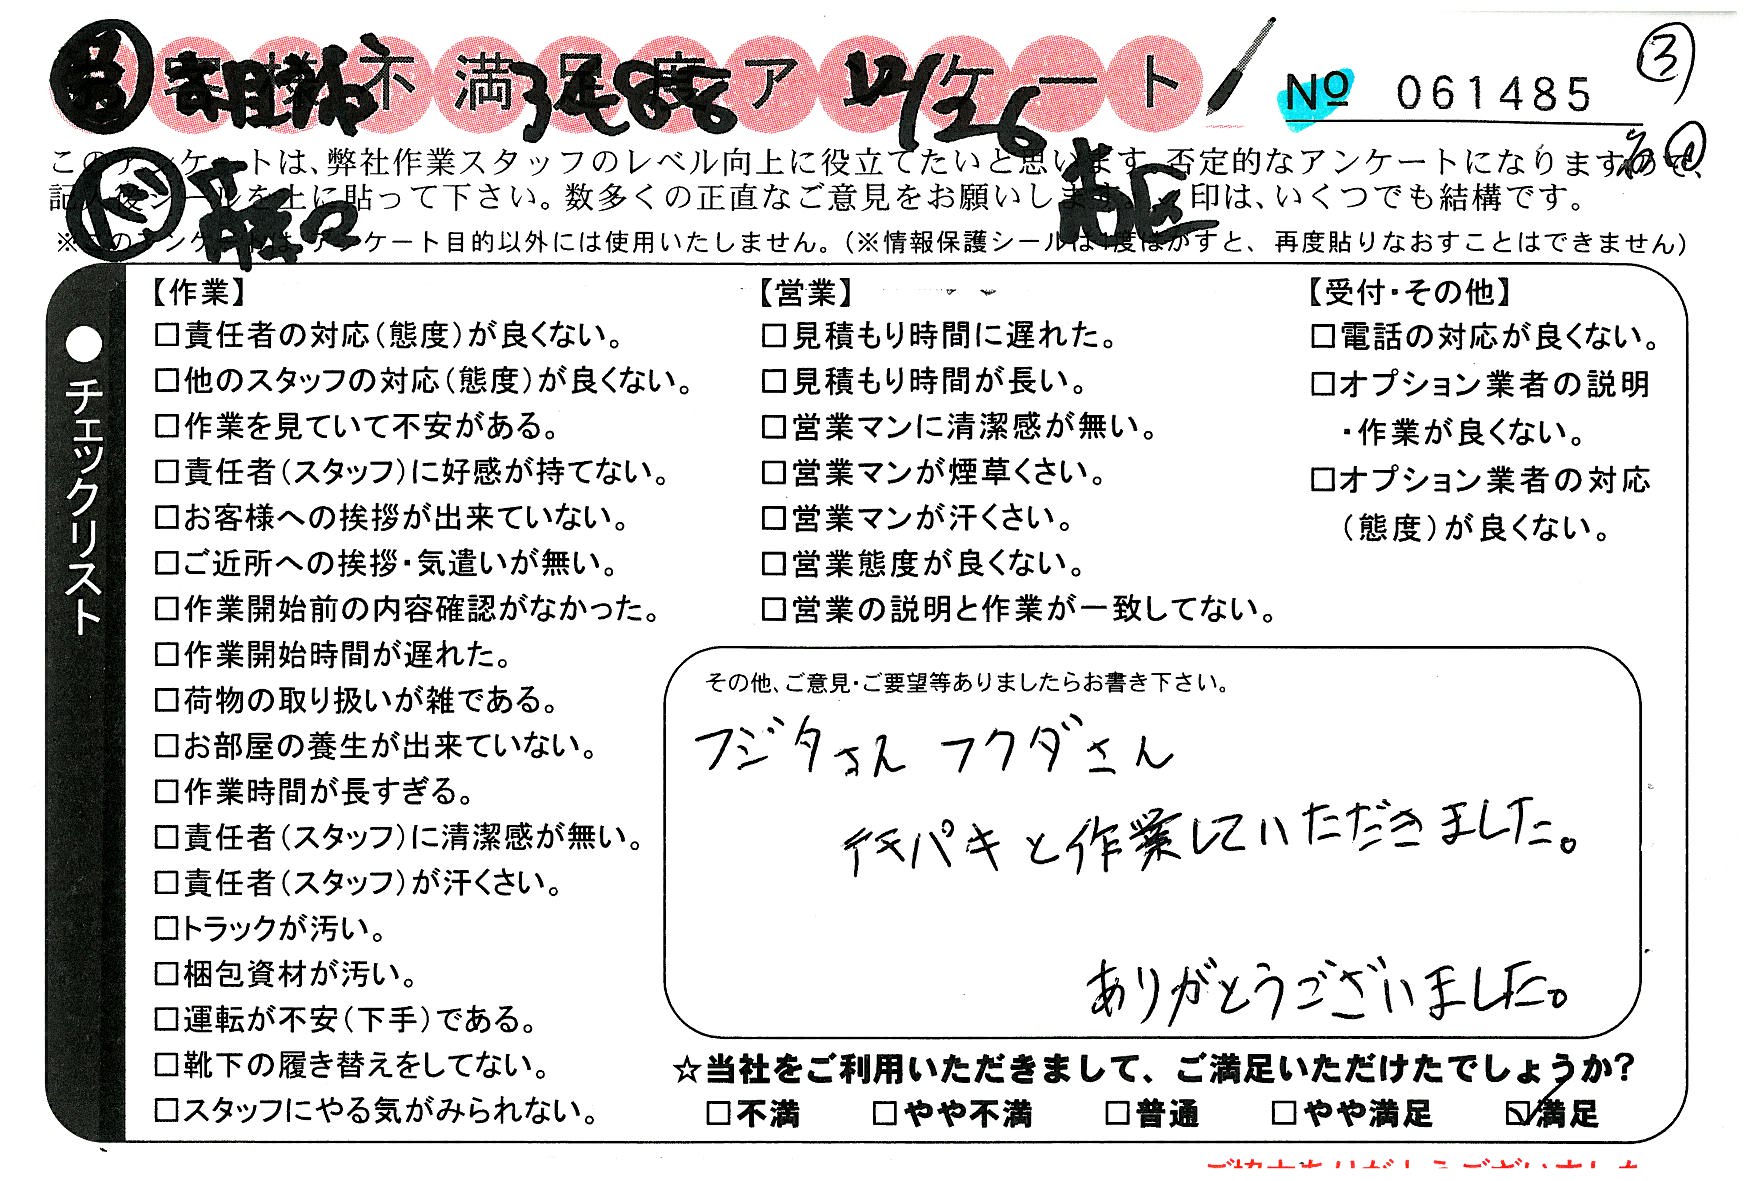 お客様不満足度アンケート
3688
12/26
No 061485
③
このアンケートは、弊社作業スタッフのレベル向上に役立てたいと思います。否定的なアンケートになりますので、
記入後シールを上に貼って下さい。数多くの正直なご意見をお願いします。 印は、いくつでも結構です。
※このアンケートは、アンケート目的以外には使用いたしません。(※情報保護シールは1度はがすと、再度貼りなおすことはできません)
●チェックリスト
【作業】
□責任者の対応(態度)が良くない。
□他のスタッフの対応(態度)が良くない。
□作業を見ていて不安がある。
□責任者(スタッフ)に好感が持てない。
□お客様への挨拶が出来ていない。
□ご近所への挨拶・気遣いが無い。
□作業開始前の内容確認がなかった。
□作業開始時間が遅れた。
□荷物の取り扱いが雑である。
□お部屋の養生が出来ていない。
□作業時間が長すぎる。
□責任者(スタッフ)に清潔感が無い。
□責任者(スタッフ)が汗くさい。
□トラックが汚い。
□梱包資材が汚い。
□運転が不安(下手)である。
□靴下の履き替えをしてない。
□スタッフにやる気がみられない。
【営業】
□見積もり時間に遅れた。
□見積もり時間が長い。
□営業マンに清潔感が無い。
□営業マンが煙草くさい。
□営業マンが汗くさい。
□営業態度が良くない。
□営業の説明と作業が一致してない。
【受付・その他】
□電話の対応が良くない。
□オプション業者の説明
・作業が良くない。
□オプション業者の対応
(態度)が良くない。
その他、ご意見・ご要望等ありましたらお書き下さい。
フジタさん フクダさん
テキパキと作業していただきました。
ありがとうございました。
☆当社をご利用いただきまして、ご満足いただけたでしょうか?
□不満 □やや不満 □普通 □やや満足 ☑満足
ご協力ありがとうございました